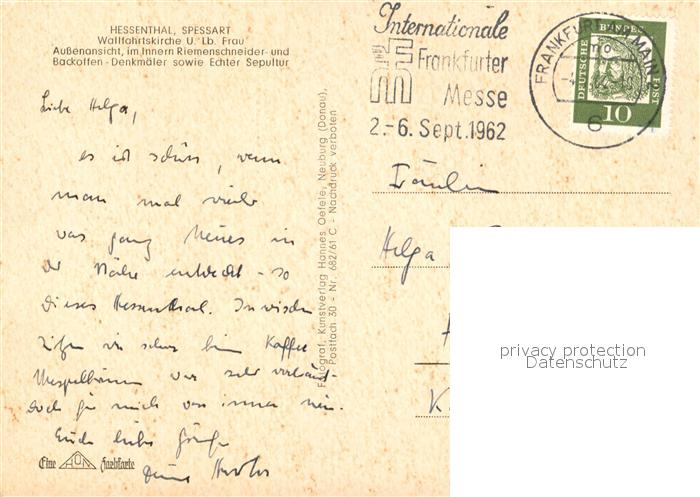 HESSENTHAL, SPESSART
Wallfahrtskirche U. Lb. Frau
Außenansicht, im Innern Riemenschneider- und
Backoffen - Denkmäler sowie Echter Sepultur
Internationale
Frankfurter
Messe
2.-6. Sept. 1962
FRANKFURT MAIN
6
DEUTSCHE BUNDESPOST
10
Liebe Helga,
es ist schön, wenn
man mal wieder
was ganz Neues in
der Nähe entdeckt - so
dieses Hessenthal. Inzwischen
sitzen wir schon beim Kaffee
Mespelbrunn war sehr
doch für mich was immer neu.
Euch liebe Grüße
Deine
Fotograf. Kunstverlag Hannes Oefele, Neuburg (Donau),
Postfach 30 - Nr. 682/61 C - Nachdruck verboten
Fräulein
Helga
K
privacy protection
Datenschutz
Eine HON Farbkarte